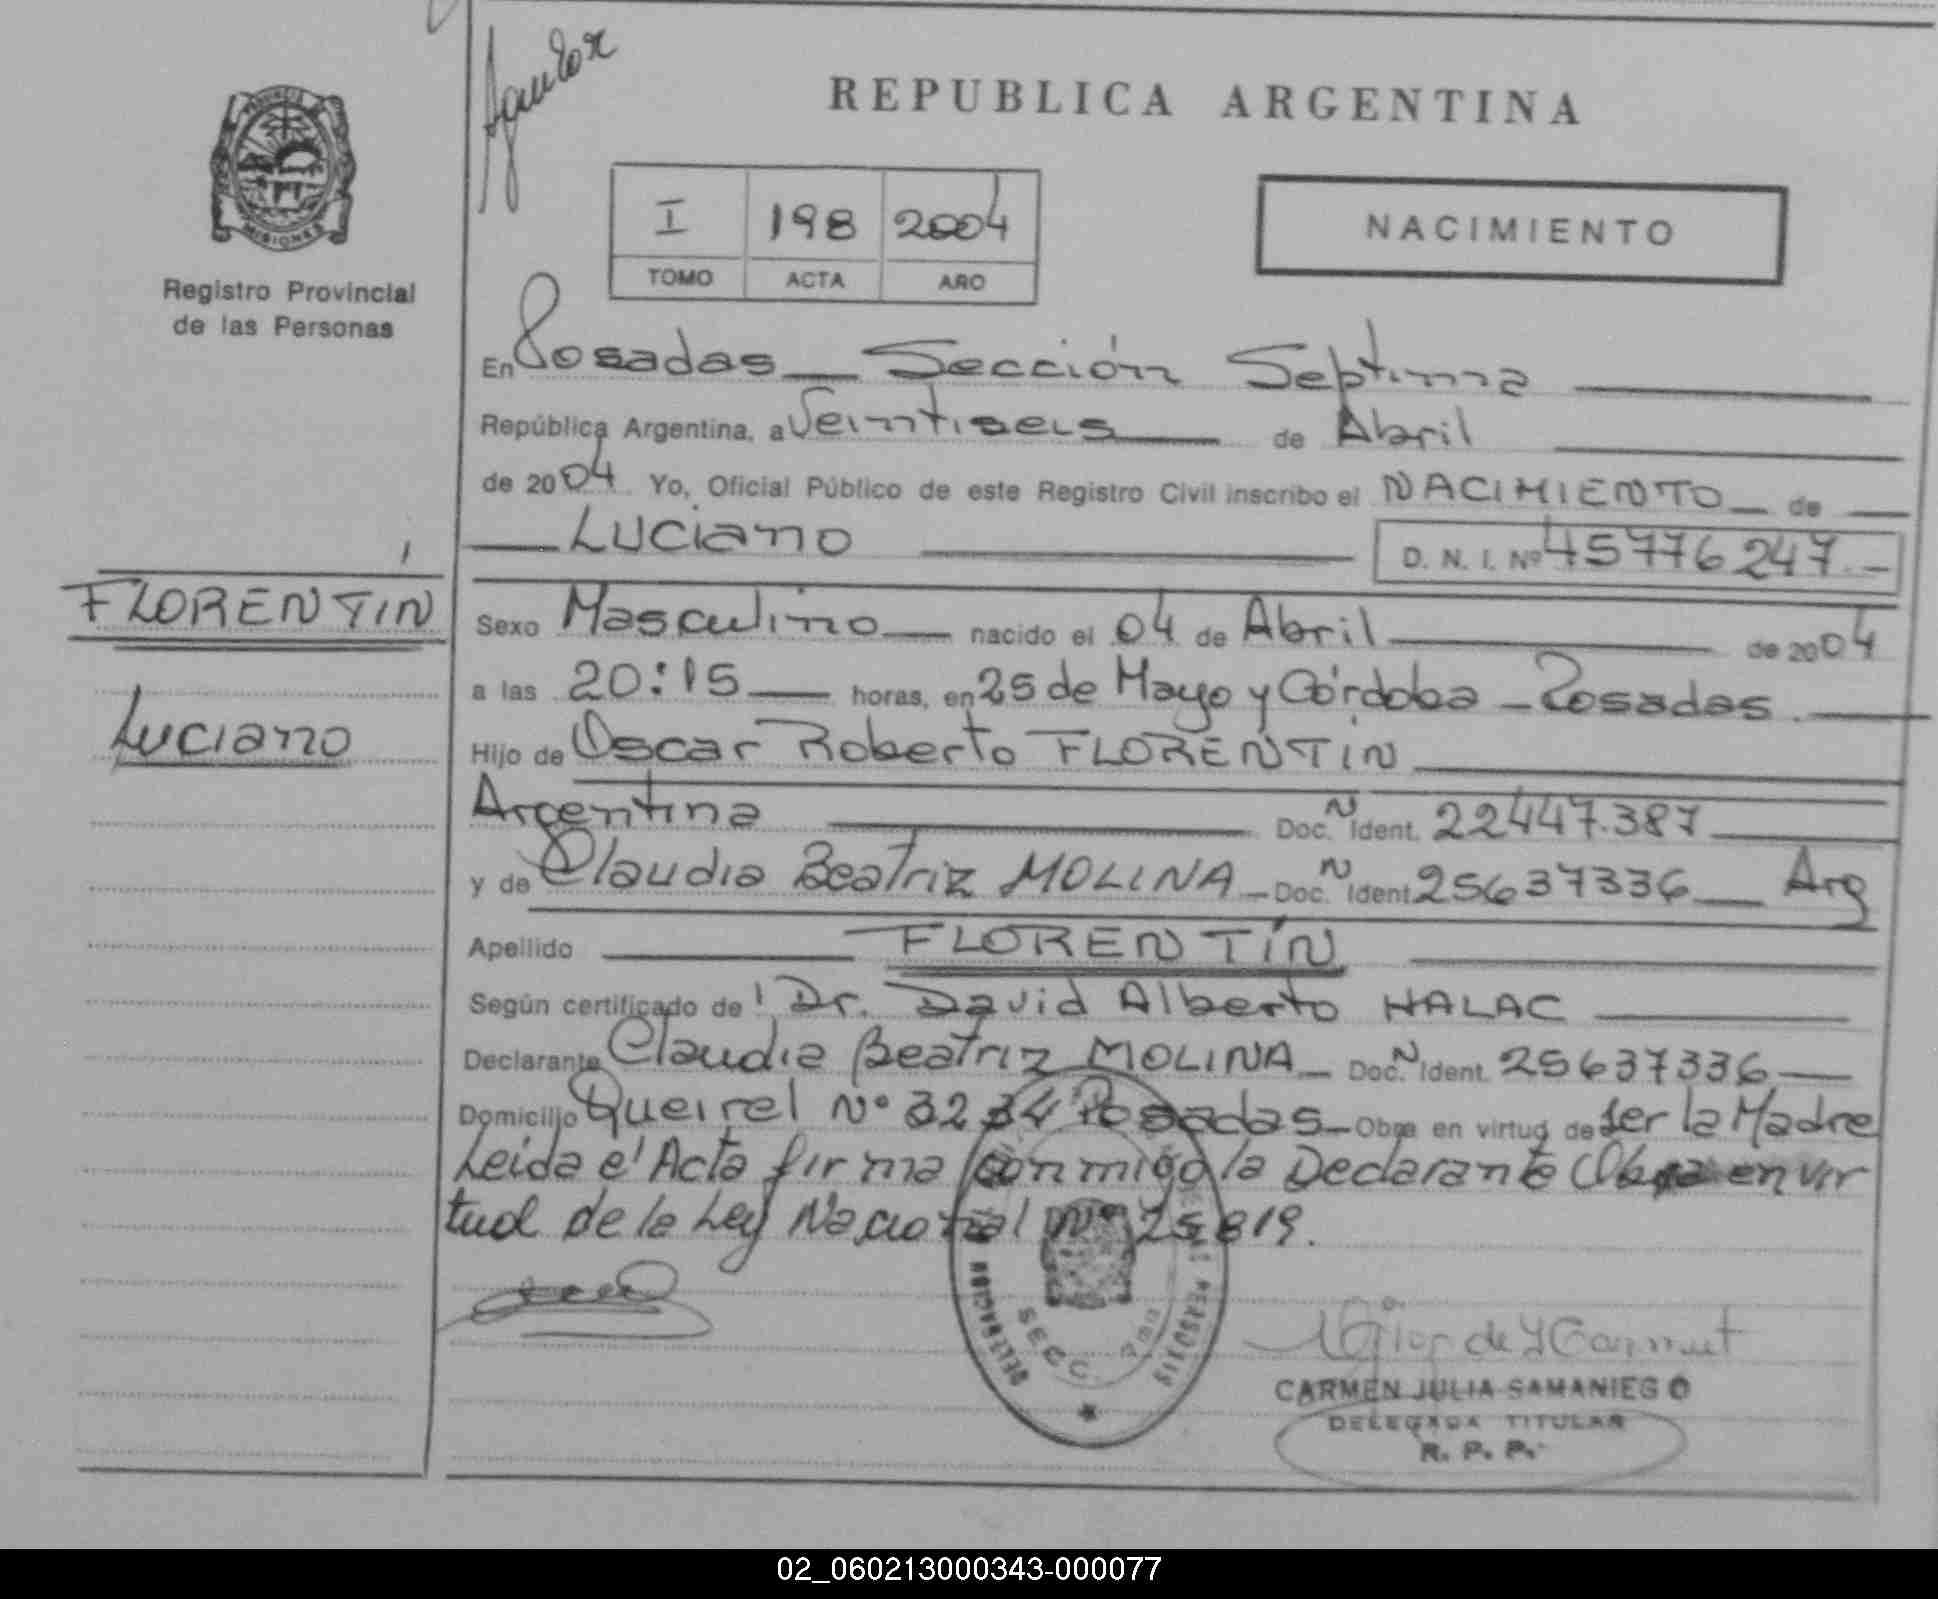 REPUBLICA ARGENTINA
PROVINCIA
MISIONES
Registro Provincial
de las Personas
I 198 2004
TOMO ACTA AÑO
NACIMIENTO
En Posadas — Sección Septima
República Argentina, a Veintiseis de Abril
de 2004 Yo, Oficial Público de este Registro Civil inscribo el NACIMIENTO de
Luciano D. N. I. Nº 45776247.-
FLORENTÍN
Luciano
Sexo Masculino nacido el 04 de Abril de 2004
a las 20:15 horas, en 25 de Mayo y Córdoba - Posadas.
Hijo de Oscar Roberto FLORENTÍN
Argentina Doc. N Ident. 22447.387
y de Claudia Beatriz MOLINA - Doc. N Ident. 25637336 Arg
Apellido FLORENTÍN
Según certificado de Dr. David Alberto HALAC
Declarante Claudia Beatriz MOLINA - Doc. N Ident. 25637336
Domicilio Queirel Nº 3234 Posadas - Obra en virtud de ser la Madre
Leida el Acta firma conmigo la Declarante Obra en vir
tud de la Ley Nacional Nº 25819.
DELEGACION
PERSONAS
SECC. 7ma
CARMEN JULIA SAMANIEGO
DELEGADA TITULAR
R. P. P.
02_060213000343-000077